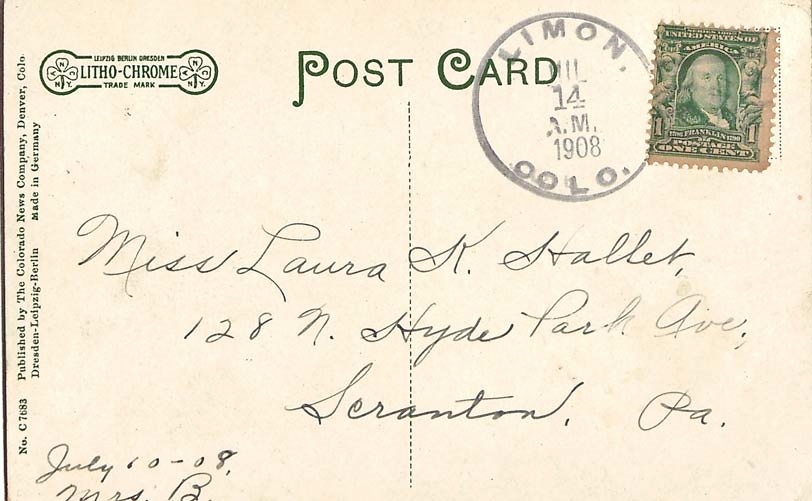 No. C 7683 Published by The Colorado News Company, Denver, Colo.
Dresden-Leipzig-Berlin Made in Germany
LEIPZIG BERLIN DRESDEN
LITHO-CHROME
TRADE MARK
N Y N C
N Y N C
POST CARD
LIMON,
JUL
14
A.M.
1908
COLO.
SERIES 1902
UNITED STATES OF
AMERICA
1706 FRANKLIN 1790
1 1
POSTAGE
ONE CENT
Miss Laura K. Hallet,
128 N. Hyde Park Ave,
Scranton, Pa.
July 10-08.
Mrs. B.